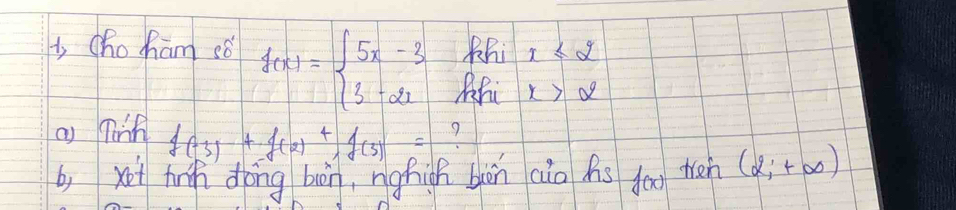 1, Cho hàm số f(x) = { 5x - 3 khi x ≤ 2
3 - 2x khi x > 2
a) Tính f(-3) + f(2) + f(3) = ?
b, xét tính đồng biến, nghịch biến của hs f(x) trên (2; +∞)